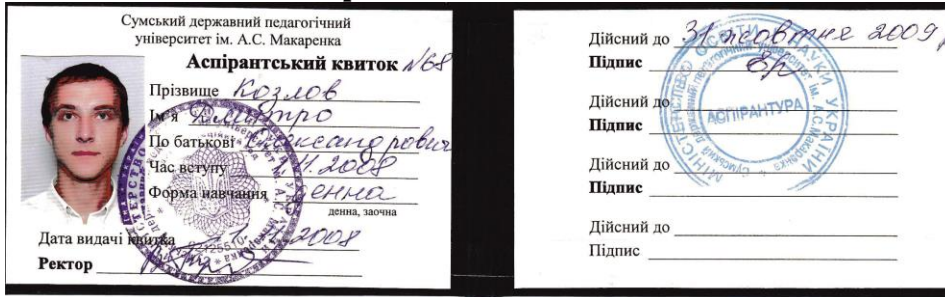 Сумський державний педагогічний
університет ім. А.С. Макаренка
Аспірантський квиток №68
Прізвище Козлов
Ім'я Дмитро
По батькові Олександрович
Час вступу 2008
Форма навчання денна
денна, заочна
Дата видачі квитка 2008
Ректор
Дійсний до 31 жовтня 2009 р
Підпис
Дійсний до
Підпис
Дійсний до
Підпис
Дійсний до
Підпис
МІНІСТЕРСТВО ОСВІТИ І НАУКИ УКРАЇНИ
Сумський державний педагогічний університет ім. А.С.Макаренка
АСПІРАНТУРА